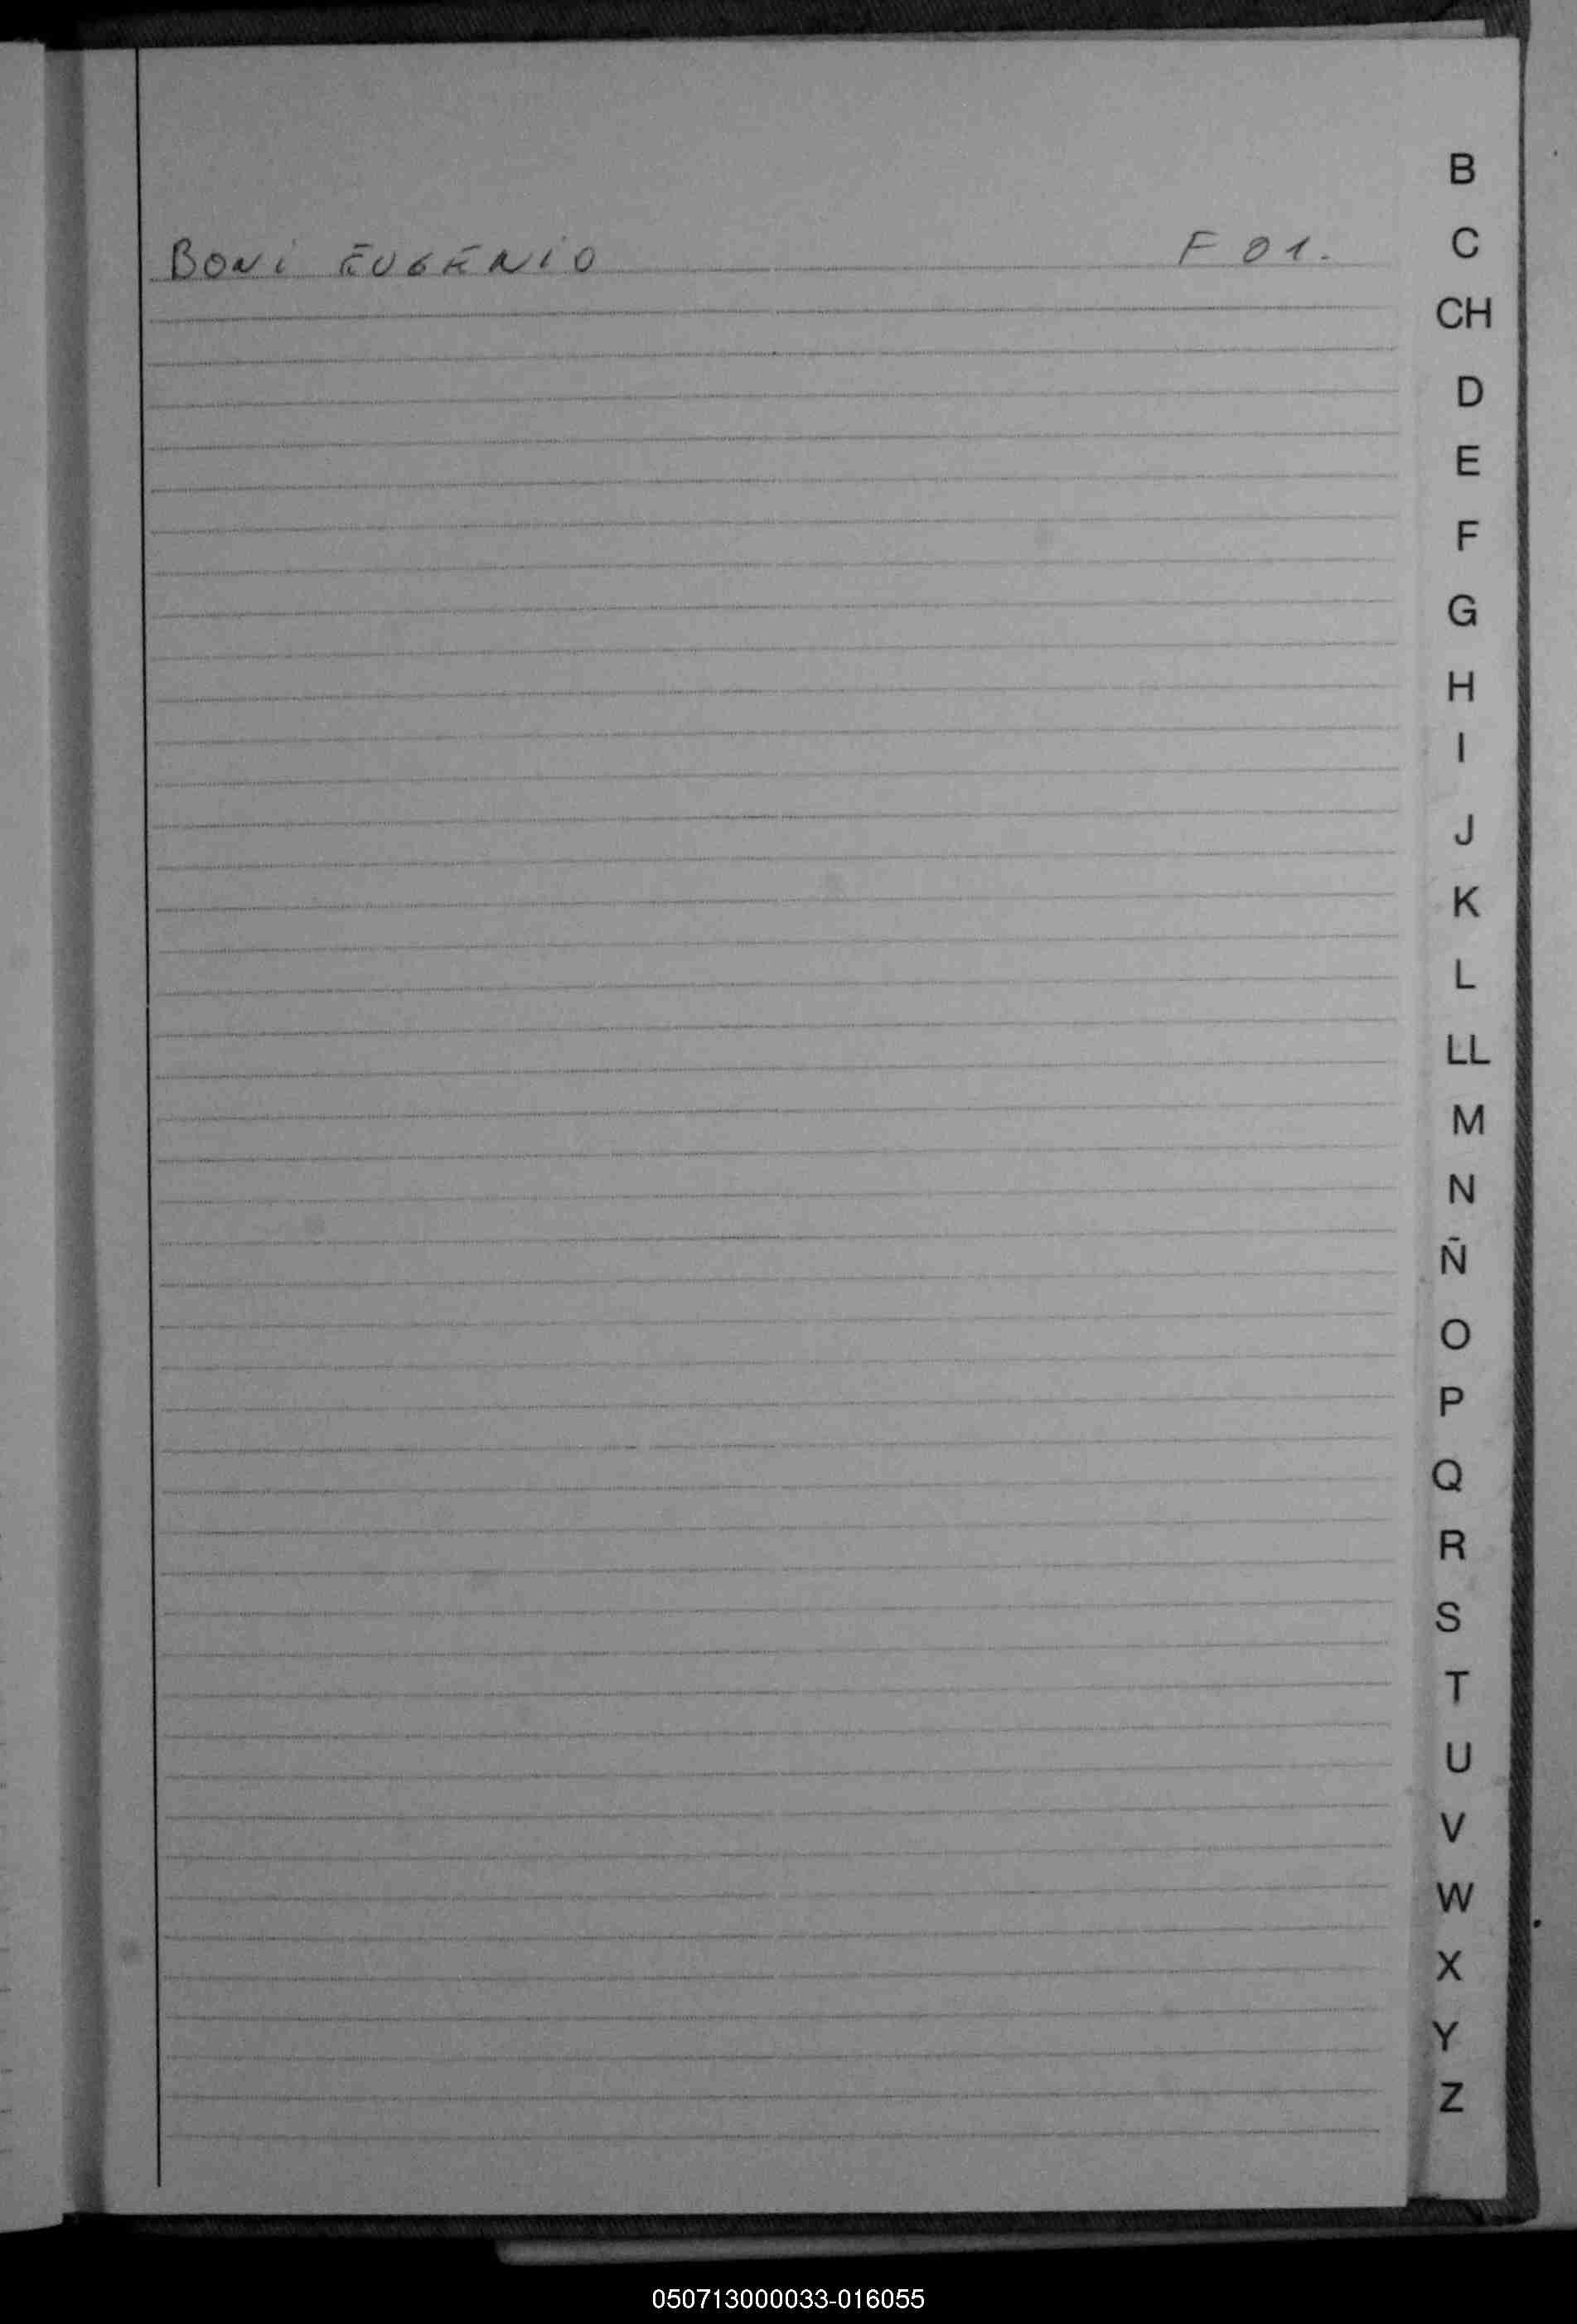 BONI EUGENIO F 01.
B
C
CH
D
E
F
G
H
I
J
K
L
LL
M
N
Ñ
O
P
Q
R
S
T
U
V
W
X
Y
Z
050713000033-016055